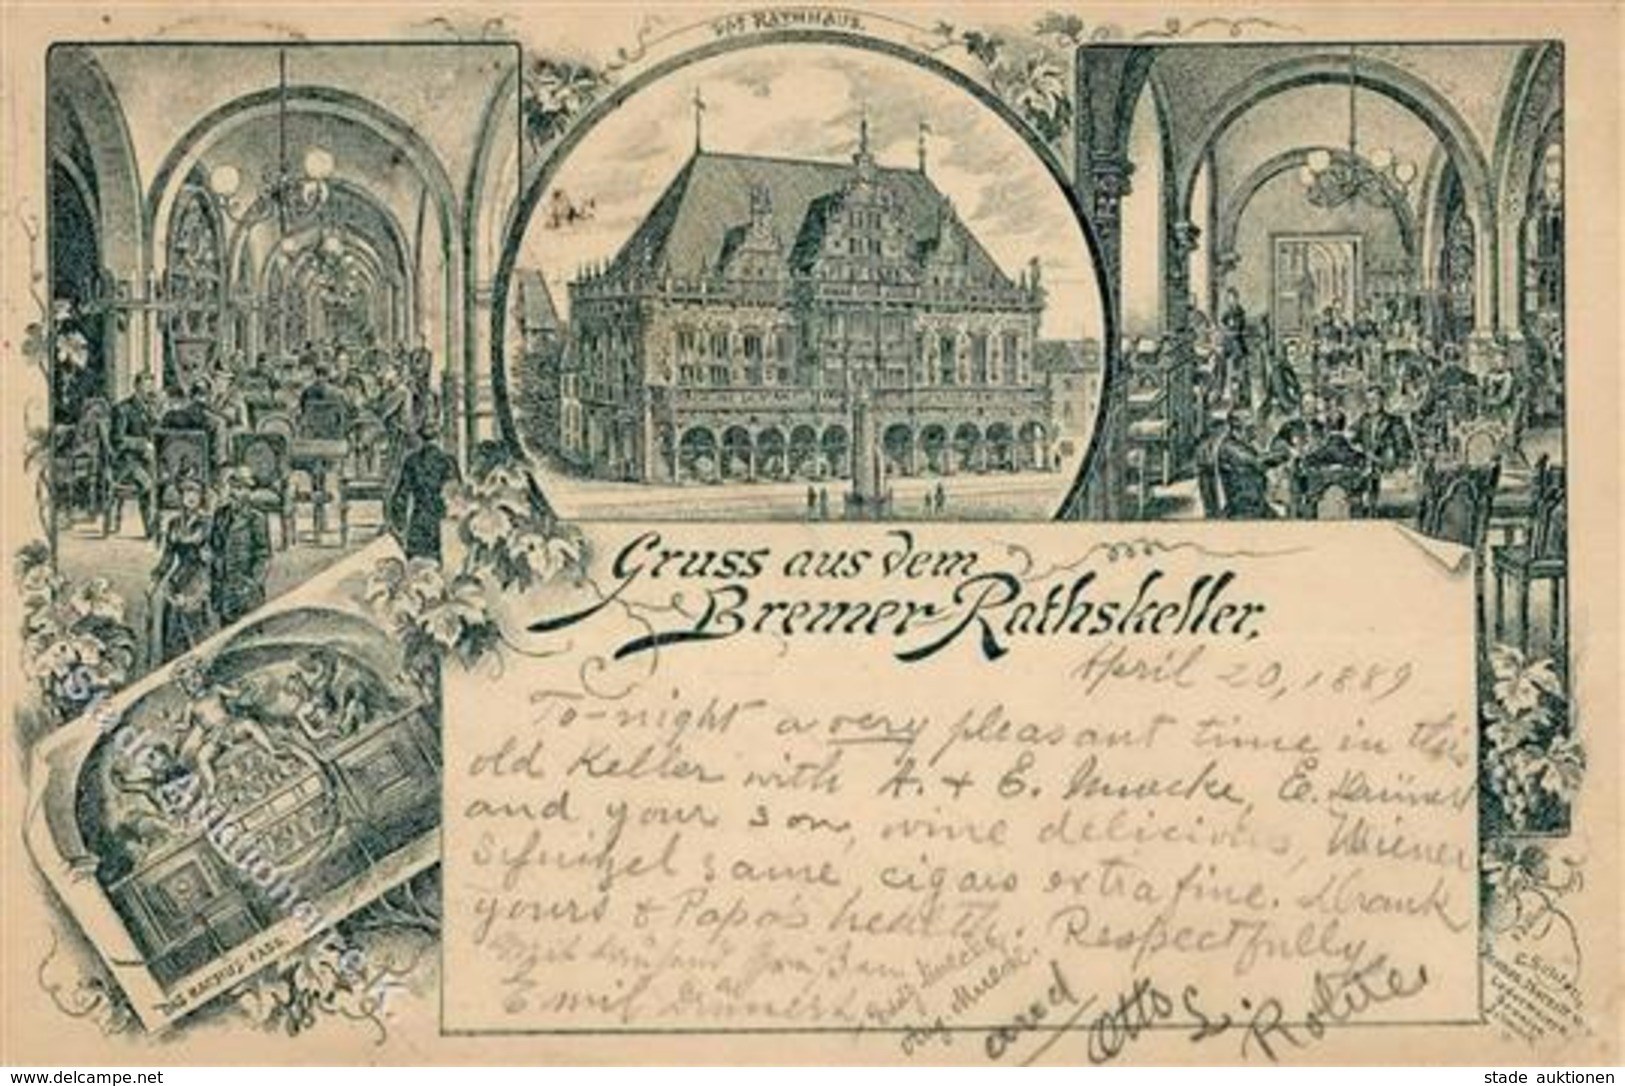 Das RATHHAUS.
Gruss aus dem
Bremer-Rathskeller.
April 20, 1889
To-night a very pleasant time in this
old Keller with A. + E. Muecke, E.
and your son, wine delicious, Wiener
Schnizel same, cigars extra fine. Drank
yours & Papa's health. Respectfully
Mit tausend Grüßen
Emil
Otto L.
DAS BACCHUS-FASS.
Stade Auktionen e.K.
www.delcampe.net
stade auktionen